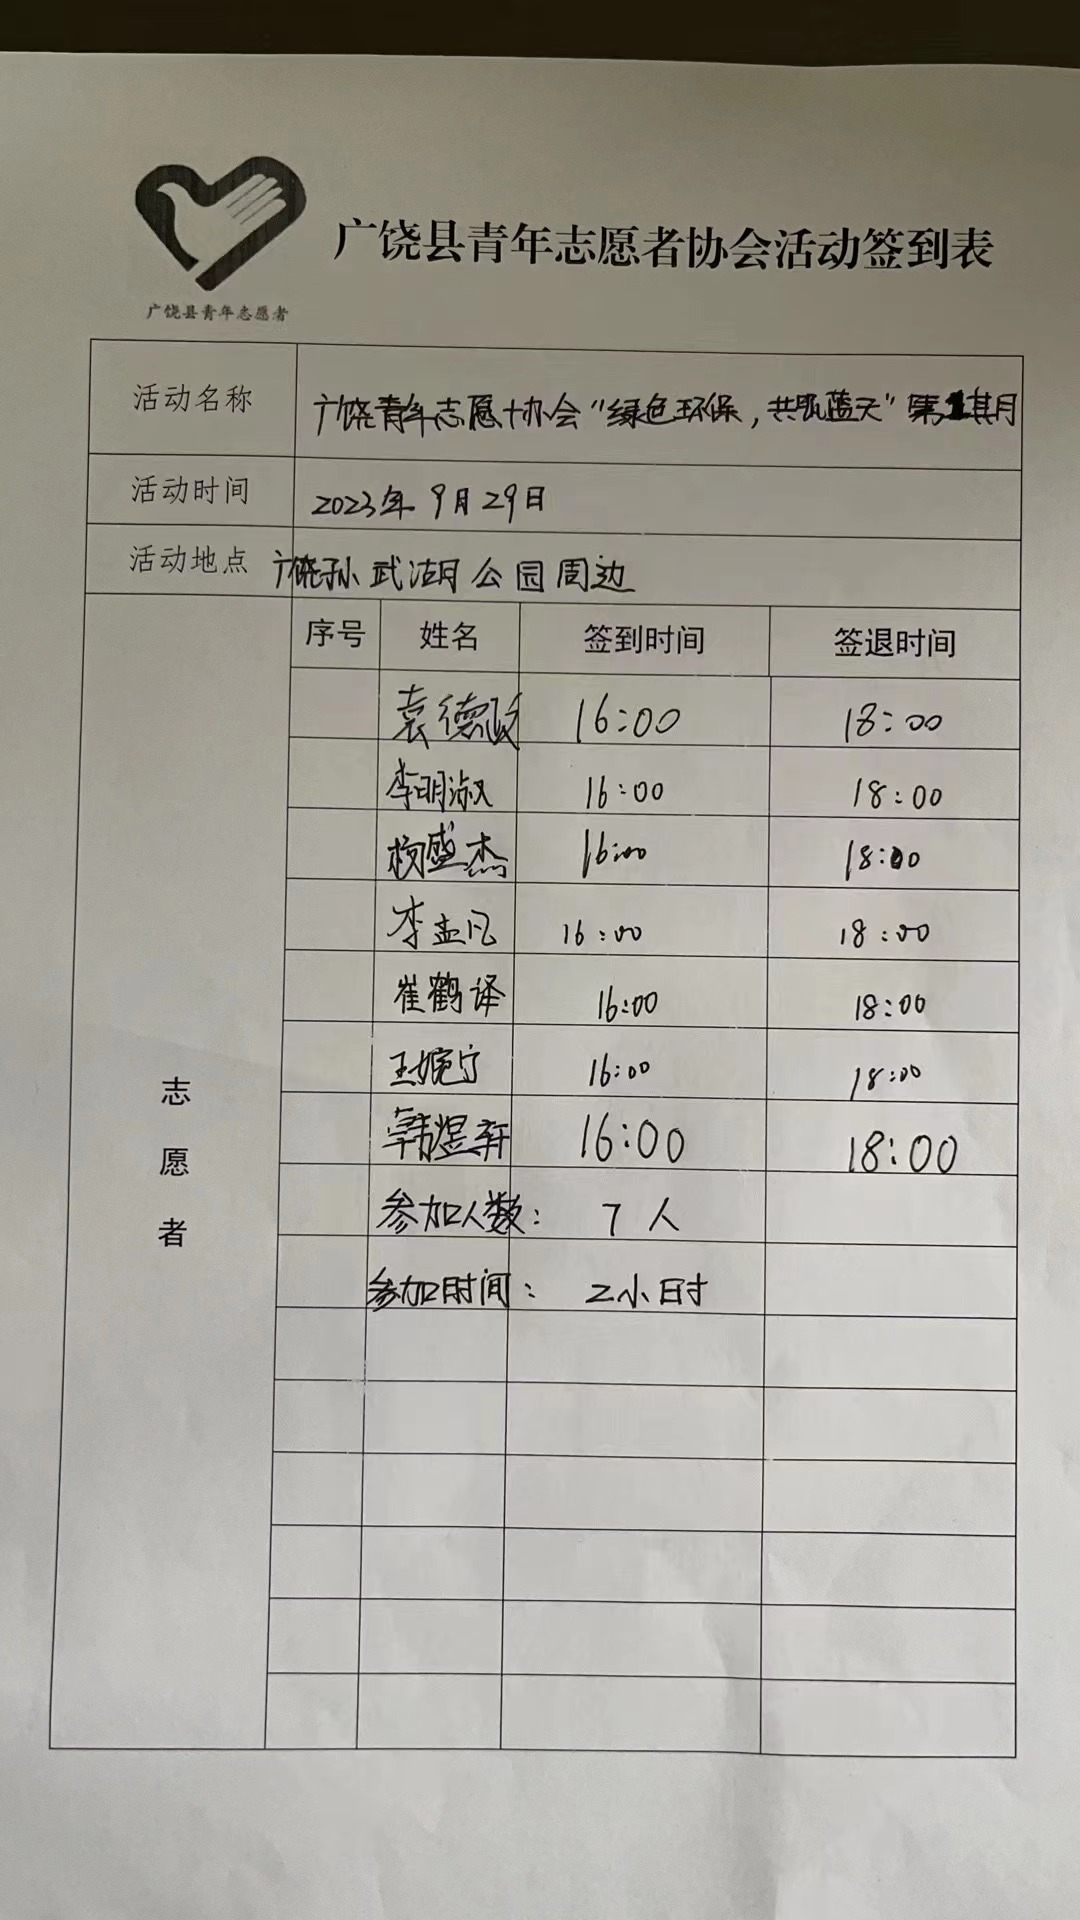 广饶县青年志愿者协会活动签到表
广饶县青年志愿者
活动名称 广饶青年志愿协会“绿色环保，共筑蓝天”第1期
活动时间 2023年9月29日
活动地点 广饶孙武湖公园周边
志愿者
序号 姓名 签到时间 签退时间
袁德政 16:00 18:00
李明淑 16:00 18:00
杨盛杰 16:00 18:00
李孟凡 16:00 18:00
崔鹤译 16:00 18:00
王婉宁 16:00 18:00
韩煜轩 16:00 18:00
参加人数： 7人
参加时间： 2小时